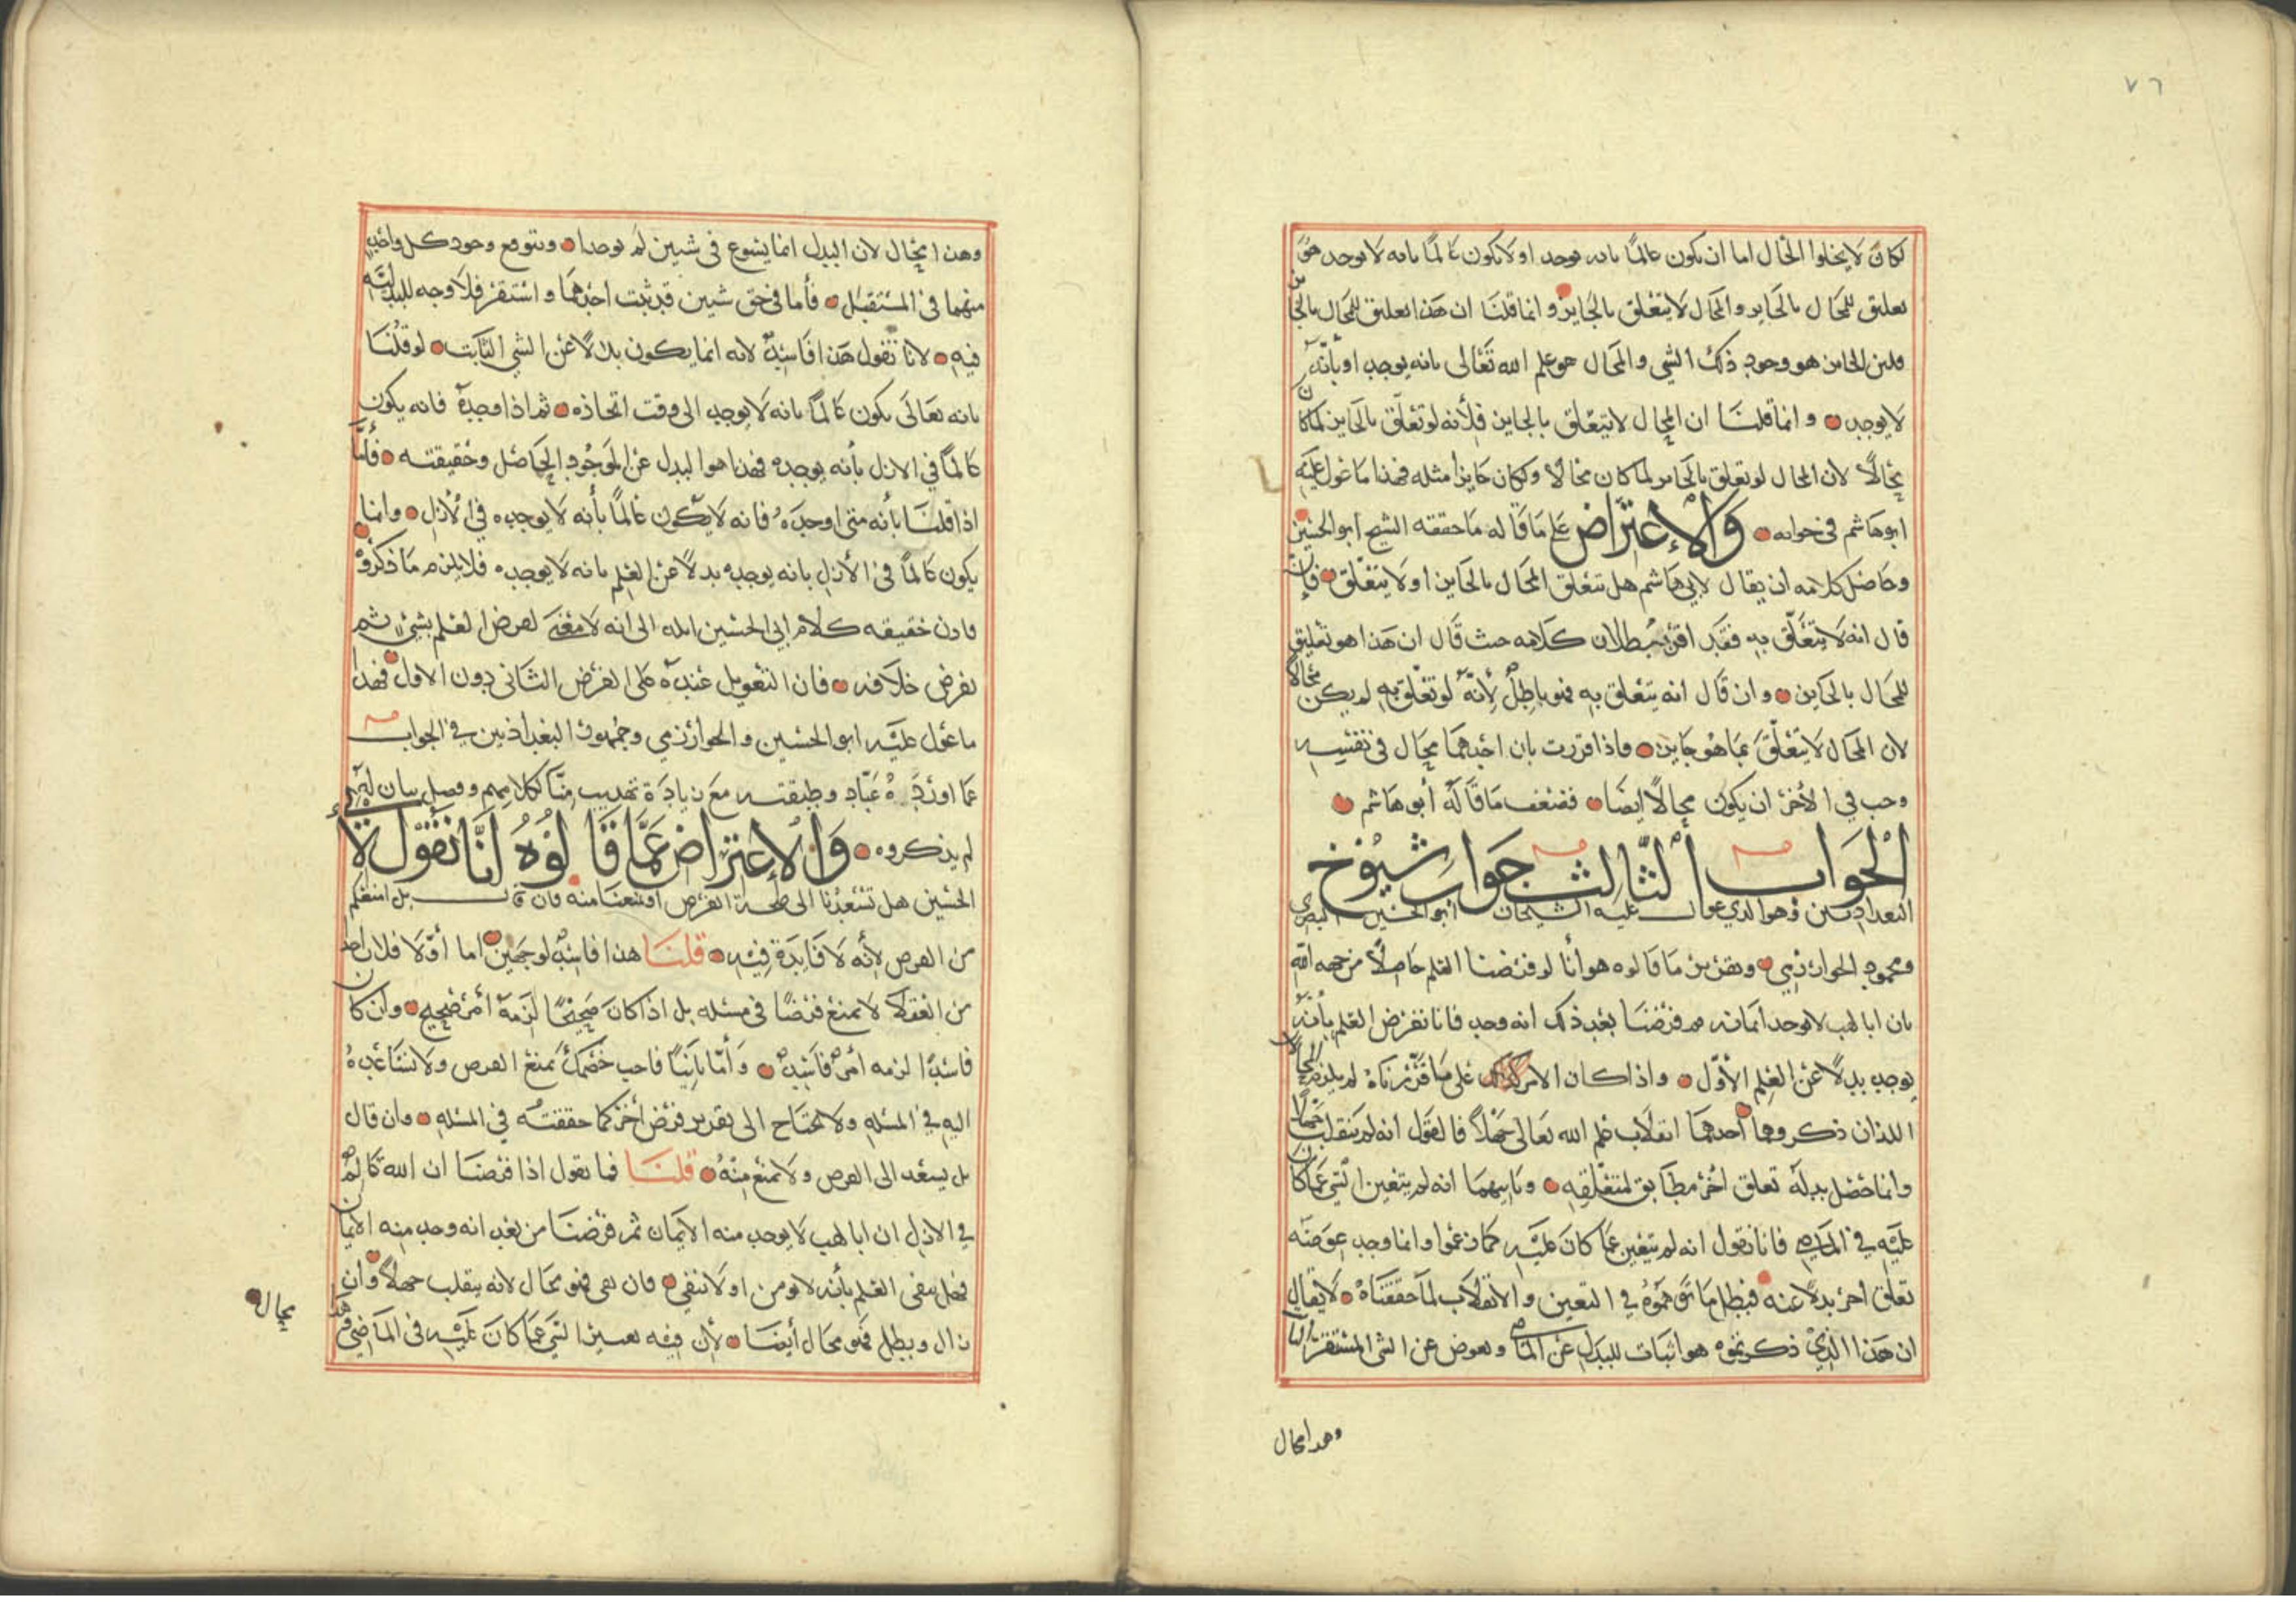 ٧٦
لكان لا يخلوا الحال اما ان يكون عالمًا بانه يوجد او لا يكون عالمًا بانه لا يوجد هو
تعليق للمحال بالجايز والمحال لا يتعلق بالجايز وانما قلنا ان هذا تعليق للمحال بالجايز من
فلان الجايز هو وجود ذلك الشي والمحال هو علم الله تعالى بانه يوجد او بانه
لا يوجد وانما قلنا ان المحال لا يتعلق بالجايز فلأنه لو تعلق بالجايز لما كان
محالًا لان المحال لو تعلق بالجايز لما كان محالا ولكان جايزا مثله فهذا ما عول عليه
ابو هاشم في جوابه والإعتراض على ما قاله ما حققه الشيخ ابو الحسين
وحاصل كلامه ان يقال لابي هاشم هل تتعلق المحال بالجايز او لا يتعلق فإن
قال انه لا يتعلق به فقد اقر ببطلان كلامه حيث قال ان هذا هو تعليق
للمحال بالجايز وان قال انه يتعلق به فهو باطل لأنه لو تعلق به لم يكن محالًا
لان المحال لا يتعلق بما هو جايز فاذا قررت بان احدهما محال في نفسه
وجب في الأخر ان يكون محالًا ايضا فضعف ما قاله أبو هاشم
الجواب الثالث جواب شيوخ
البغداديين وهو الذي عول عليه الشيخان ابو الحسين البصري
ومحمود الخوارزمي وتقرير ما قالوه هو أنا لو فرضنا العلم حاصلًا من جهه الله
بان ابا لهب لا يوجد ايمانه ثم فرضنا بعد ذلك انه وجد فانا نفرض العلم بأنه
يوجد بدلًا عن العلم الأول واذا كان الامر كذلك على ما قررناه لم يلزم المحالان
اللذان ذكروهما أحدهما انقلاب علم الله تعالى جهلًا فالقول انه لم ينقلب جهلًا
وانما حصل بدله تعلق أخر مطابق لمتعلقه وثانيهما انه لم يتغير الشي عما كان
عليه في الماضي فانا نقول انه لم يتغير عما كان عليه كما زعموا وانما وجد عوضه
تعلق اخر بدلًا عنه فبطل ما توهموه في التغيير والانقلاب لما حققناه لا يقال
ان هذا الذي ذكرتموه هو اثبات للبدل عن الماضي وتعوض عن الشي المستقر الثابت
وهذا محال
وهذا محال لان البدل انما يشوع في شيين لم يوجدا ويتوقع وجود كل واحد
منهما في المستقبل فأما في حق شيين قد ثبت احدهما واستقر فلا وجه للبدليّه
فيه لانا نقول هذا فاسد لانه انما يكون بدلًا عن الشي الثابت لو قلنا
بانه تعالى يكون عالمًا بانه لا يوجد الى وقت اتحاذه ثم اذا وجده فانه يكون
عالمًا في الازل بأنه يوجده فهذا هو البدل عن الموجود الحاصل وحقيقته فأما
اذا قلنا بأنه متى اوجده فانه لا يكون عالمًا بأنه لا يوجده في الأزل وانما
يكون عالمًا في الأزل بانه يوجده بدلًا عن العلم بانه لا يوجده فلا يلزم ما ذكروه
فاذن حقيقه كلام ابي الحسين ايله الى انه لا معنى لفرض العلم بشيء ثم
نفرض خلافه فان التعويل عنده على الفرض الثاني دون الاول فهذا
ما عول عليه ابو الحسين والخوارزمي وجمهور البغداذيين في الجواب
عما اورده عبّاد وطبقته مع زيادة تهذيب منّا لكلامهم وفصل بيان
لم يذكروه والإعتراض عمّا قالوه أنّا نقول لأبي
الحسين هل تشعدنا الى صحة الفرض او تمنعنا منه فان قال بل امنعكم
من الفرض لأنه لا فايدة فيه قلنا هذا فاسد لوجهين اما أوّلا فلان احدا
من العقلا لا يمنع فرضًا في مسئله بل اذا كان صحيحًا لزمه أمر صحيح وان كان
فاسدًا لزمه أمر فاسد وأمّا ثانيًا فاحب خصمك يمنع الفرص ولا تساعده
اليه في المسئله ولا يحتاج الى تقدير فرض أخر كما حققته في المسئله وان قال
بل يسعد الى الفرص ولا يمنع منه قلنا فما تقول اذا فرضنا ان الله عالم
في الازل ان ابا لهب لا يوجد منه الايمان ثم فرضنا من بعد انه وجد منه الايمان
فهل يبقى العلم بأنه لا يومن او لا تنفي فان بقى فهو محال لانه ينقلب جهلًا وان
زال وبطل فهو محال أيضا لأن فيه تعيير الشي عما كان عليه في الماضي وهذا
محال